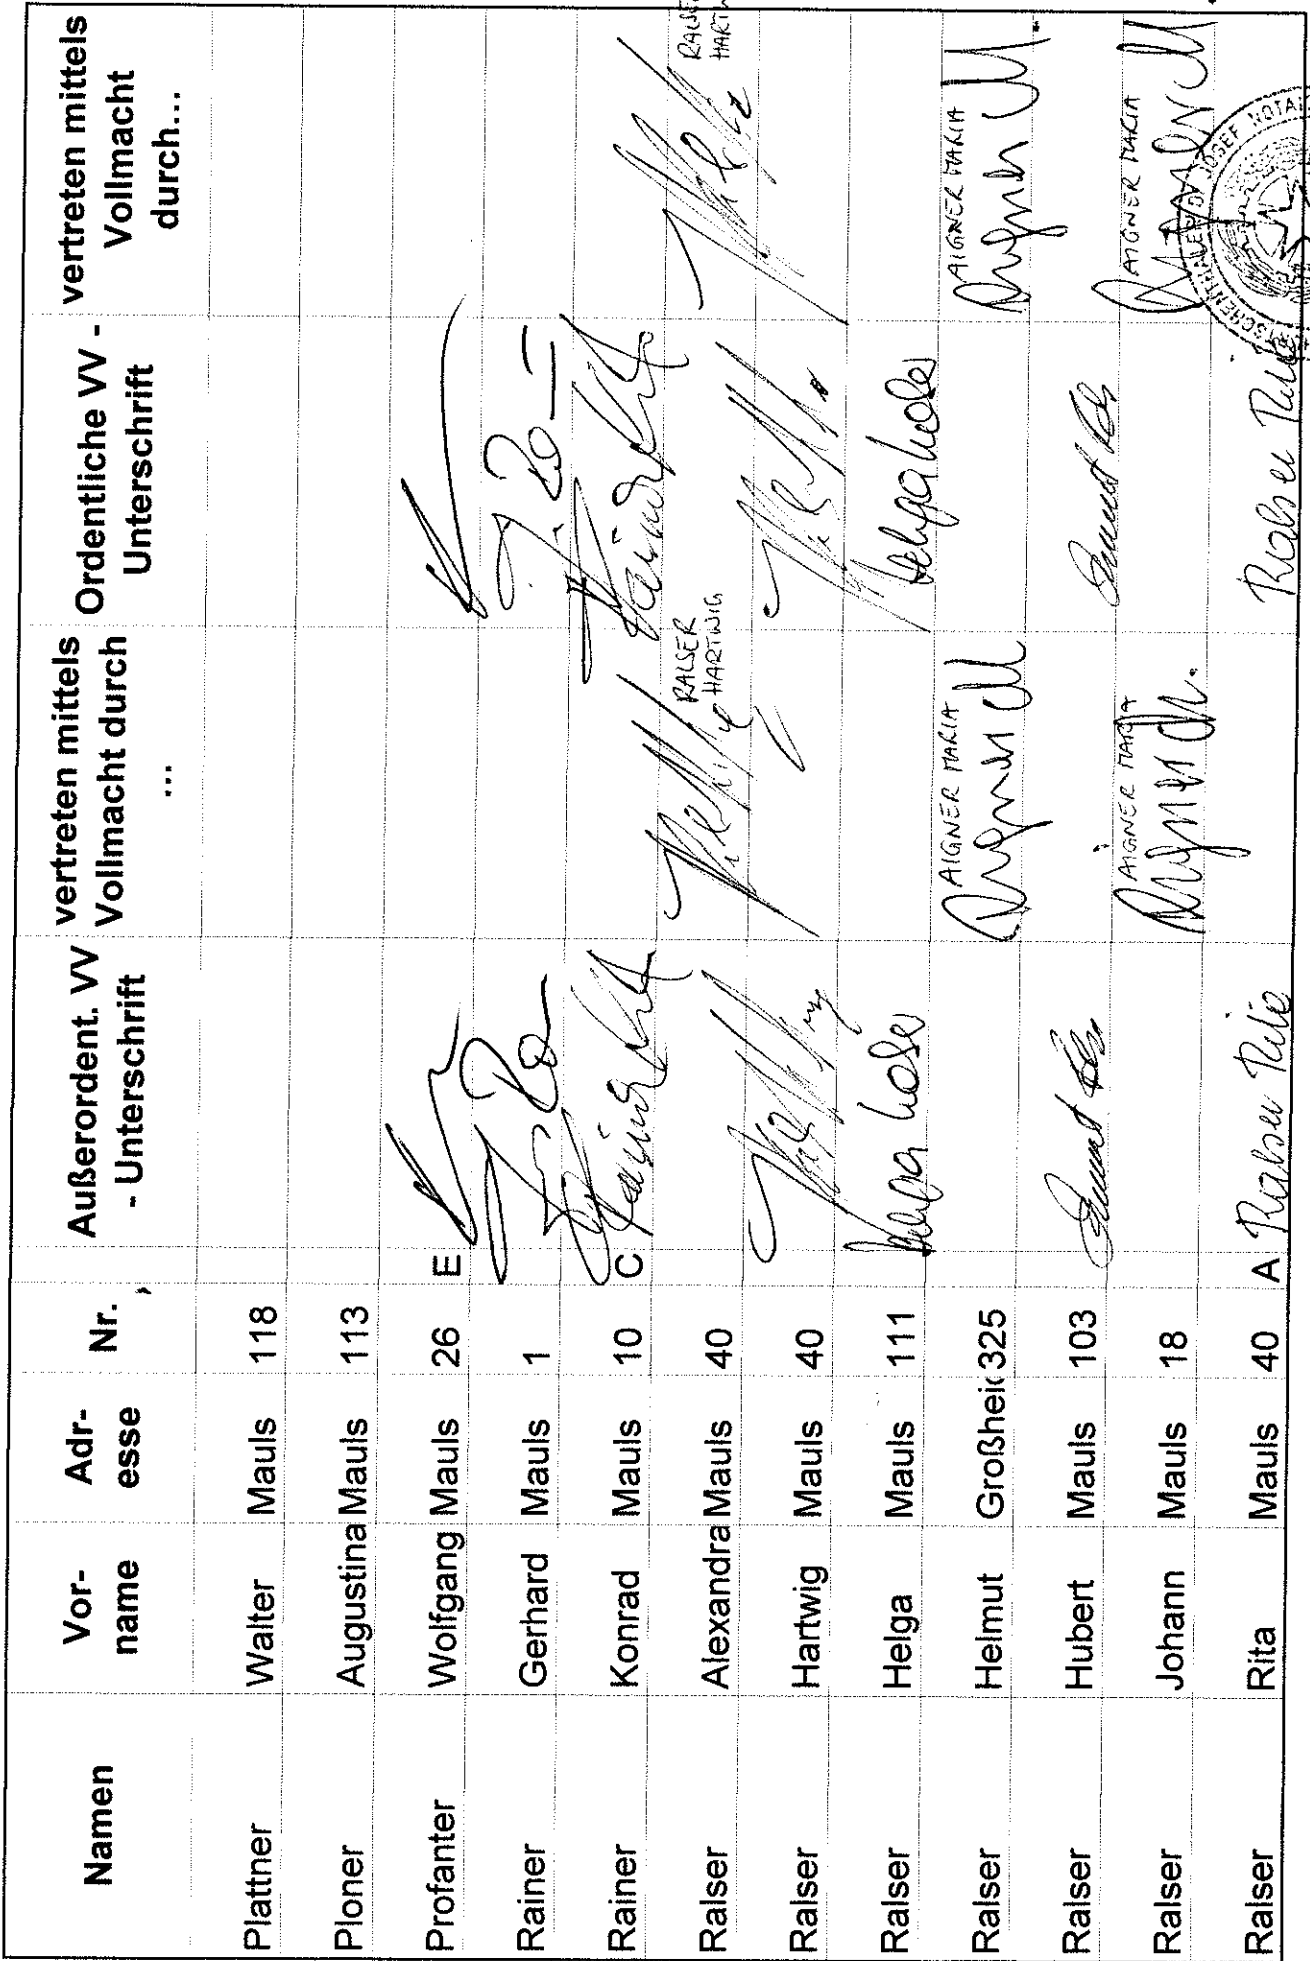 Namen Vor- name Adr- esse Nr. , Außerordent. VV - Unterschrift vertreten mittels Vollmacht durch ... Ordentliche VV - Unterschrift vertreten mittels Vollmacht durch...
Plattner Walter Mauls 118
Ploner Augustina Mauls 113
Profanter Wolfgang Mauls 26 E
Rainer Gerhard Mauls 1
Rainer Konrad Mauls 10 C
Ralser Alexandra Mauls 40 RALSER HARTWIG RALSER HARTW
Ralser Hartwig Mauls 40
Ralser Helga Mauls 111
Ralser Helmut Großheic 325 AIGNER MARIA AIGNER MARIA
Ralser Hubert Mauls 103
Ralser Johann Mauls 18 AIGNER MARIA AIGNER MARIA
Ralser Rita Mauls 40 A Ralser Rita Ralser Rita
JOSEF NOTA